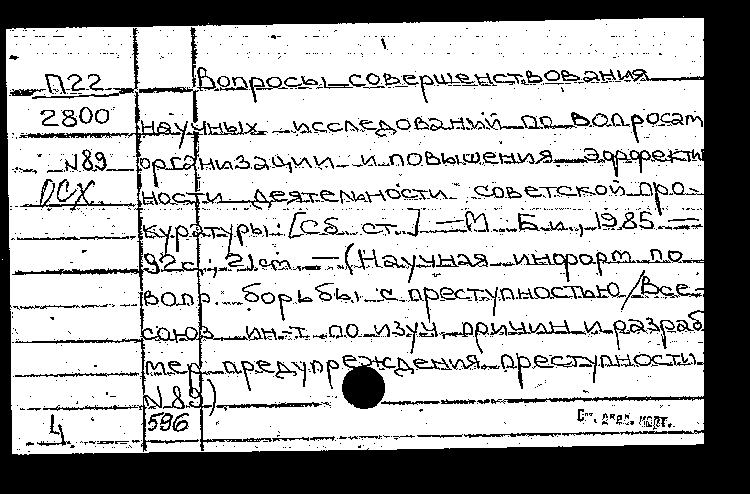 П22 Вопросы совершенствования
2800 научных исследований по вопросам
N89 организации и повышения эффекти
ОСХ ности деятельности советской про-
куратуры: [Сб. ст.] — М. Б.и., 1985 —
92с.; 21см — (Научная информ по
вопр. борьбы с преступностью / Все-
союз ин-т по изуч. причин и разраб
мер предупреждения преступности
N89)
4 596